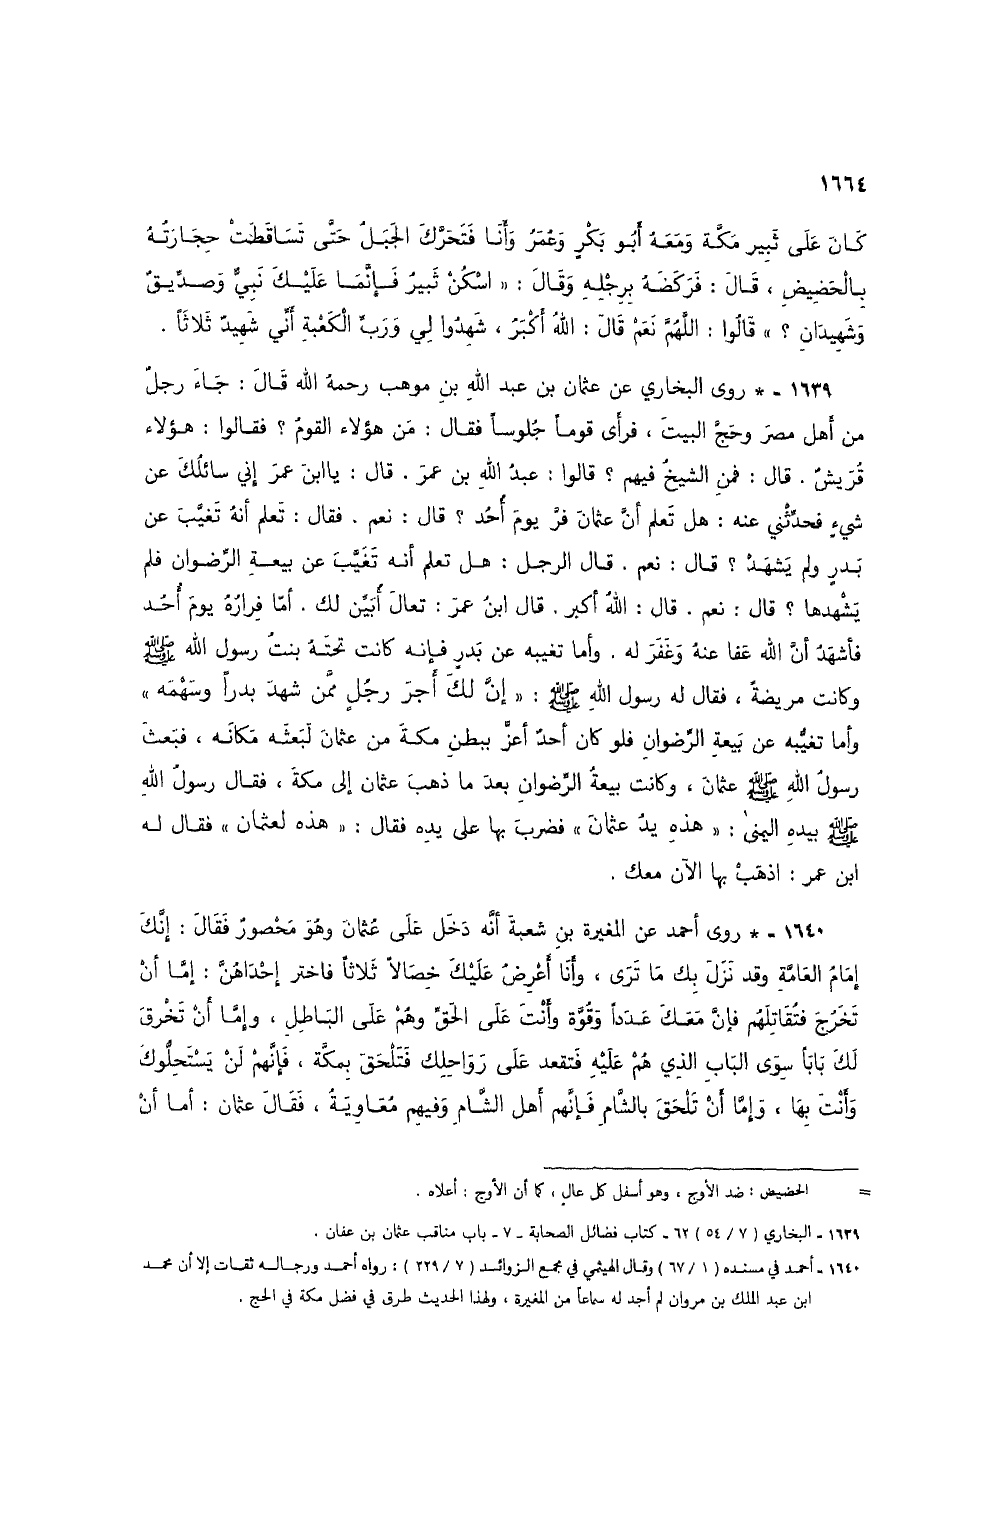 ١٦٦٤
كَانَ عَلَى ثَبِير مَكَّة وَمَعَهُ أَبُو بَكْرٍ وَعُمَرُ وَأَنَا فَتَحَرَّكَ الجَبَلُ حَتَّى تَسَاقَطَتْ حِجَارَتُهُ
بِالْحَضِيضِ ، قَالَ : فَرَكَضَهُ بِرِجْلِهِ وَقَالَ : « اسْكُنْ ثَبِيرُ فَإِنَّمَا عَلَيْكَ نَبِيٌّ وَصِدِّيقٌ
وَشَهِيدَانِ ؟ » قَالُوا : اللَّهُمَّ نَعَمْ قَالَ : اللهُ أَكْبَرُ ، شَهِدُوا لِي وَرَبِّ الْكَعْبةِ أَنِّي شَهِيدٌ ثَلاثاً .
١٦٣٩ ـ * روى البخاري عن عثمان بن عبد اللهِ بنِ موهب رحمهُ الله قَالَ : جَاءَ رجلٌ
من أَهل مصرَ وحَجَّ البيتَ ، فرأَى قوماً جُلوساً فقال : مَن هؤلاء القومُ ؟ فقالوا : هؤلاء
قُرَيشٌ . قال : فمنِ الشيخُ فيهم ؟ قالوا : عبدُ اللهِ بن عمرَ . قال : ياابنَ عمرَ إني سائلُكَ عن
شيءٍ فحدِّثْني عنه : هل تَعلم أنَّ عثمانَ فرَّ يومَ أُحُد ؟ قال : نعم . فقال : تَعلم أنهُ تَغيَّبَ عن
بَدرٍ ولم يَشهَدْ ؟ قال : نعم . قال الرجل : هل تعلم أنه تَغَيَّبَ عن بيعةِ الرِّضوان فلم
يَشْهدها ؟ قال : نعم . قال : اللهُ أكبر . قال ابنُ عمرَ : تعالَ أُبَيِّن لك . أمّا فِرارُهُ يومَ أُحُد
فأشهَدُ أنَّ الله عَفا عنهُ وَغَفَرَ له . وأما تغيبه عن بَدرٍ فإنه كانت تحتَهُ بنتُ رسول الله ﷺ
وكانت مريضةً ، فقال له رسول اللهِ ﷺ : « إنَّ لكَ أَجرَ رجُلٍ ممَّن شهدَ بدراً وسَهْمَه »
وأما تغيُّبه عن بَيعةِ الرِّضوانِ فلو كان أحدٌ أعزَّ ببطنِ مكةَ من عثمانَ لَبَعثَه مَكانَه ، فبَعثَ
رسولُ اللهِ ﷺ عثمانَ ، وكانت بيعةُ الرِّضوانِ بعدَ ما ذهبَ عثمان إلى مكةَ ، فقال رسولُ اللهِ
ﷺ بيدهِ اليمنىٰ : « هذهِ يدُ عثمانَ » فضربَ بها على يدِه فقال : « هذه لعثمان » فقال له
ابن عمر : اذهبْ بها الآن معك .
١٦٤٠ ـ * روى أحمد عن المغيرة بنِ شعبةَ أنَّه دَخَل عَلَى عُثمانَ وهُوَ مَحْصورٌ فَقَالَ : إِنَّكَ
إِمَامُ العَامَّةِ وقد نَزَلَ بِك مَا تَرَى ، وأَنَا أَعْرِضُ عَلَيْكَ خِصَالاً ثَلاثاً فاختر إِحْدَاهُنَّ : إمَّا أنْ
تَخَرُجَ فتُقَاتِلَهُم فإنَّ مَعَكَ عَدَداً وَقُوَّة وأَنْتَ عَلَى الحَقِّ وهُمْ عَلَى البَاطِلِ ، وإمَّا أَنْ تَخْرِقَ
لَكَ بَابَاً سِوَى البَابِ الذي هُمْ عَلَيْهِ فَتقعد عَلَى رَوَاحِلِك فَتَلْحَقَ بِمَكَّة ، فَإِنَّهمْ لَنْ يَسْتَحِلُّوكَ
وَأَنْتَ بِهَا ، وَإِمَّا أَنْ تَلْحَقَ بالشَّامِ فَإِنَّهم أهل الشَّامِ وَفيهِم مُعَاوِيَةُ ، فَقَالَ عثمان : أما أنْ
= الحضيض : ضد الأوج ، وهو أسفل كل عالٍ ، كما أن الأوج : أعلاه .
١٦٣٩ ـ البخاري ( ٧ / ٥٤ ) ٦٢ ـ كتاب فضائل الصحابة ـ ٧ ـ باب مناقب عثمان بن عفان .
١٦٤٠ ـ أحمد في مسنده ( ١ / ٦٧ ) وقال الهيثمي في مجمع الزوائد ( ٧ / ٢٢٩ ) : رواه أحمد ورجاله ثقات إلا أن محمد
ابن عبد الملك بن مروان لم أجد له سماعاً من المغيرة ، ولهذا الحديث طرق في فضل مكة في الحج .